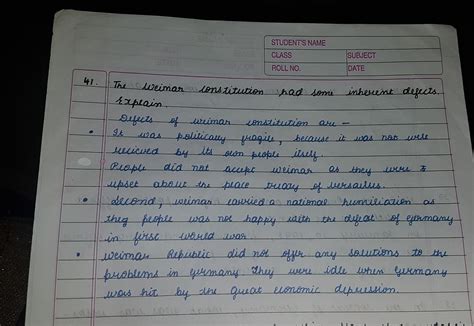 STUDENT'S NAME
CLASS SUBJECT
ROLL NO. DATE
41. The weimar constitution had some inherent defects.
Explain.
Defects of weimar constitution are -
• It was politically fragile, because it was not well
recieved by its own people itself.
People did not accept weimar as they were to
upset about the peace treaty of versailles.
• Second, weimar carried a national humiliation as
they people was not happy with the defeat of germany
in first world war.
• Weimar Republic did not offer any solutions to the
problems in germany. They were idle when germany
was hit by the great economic depression.